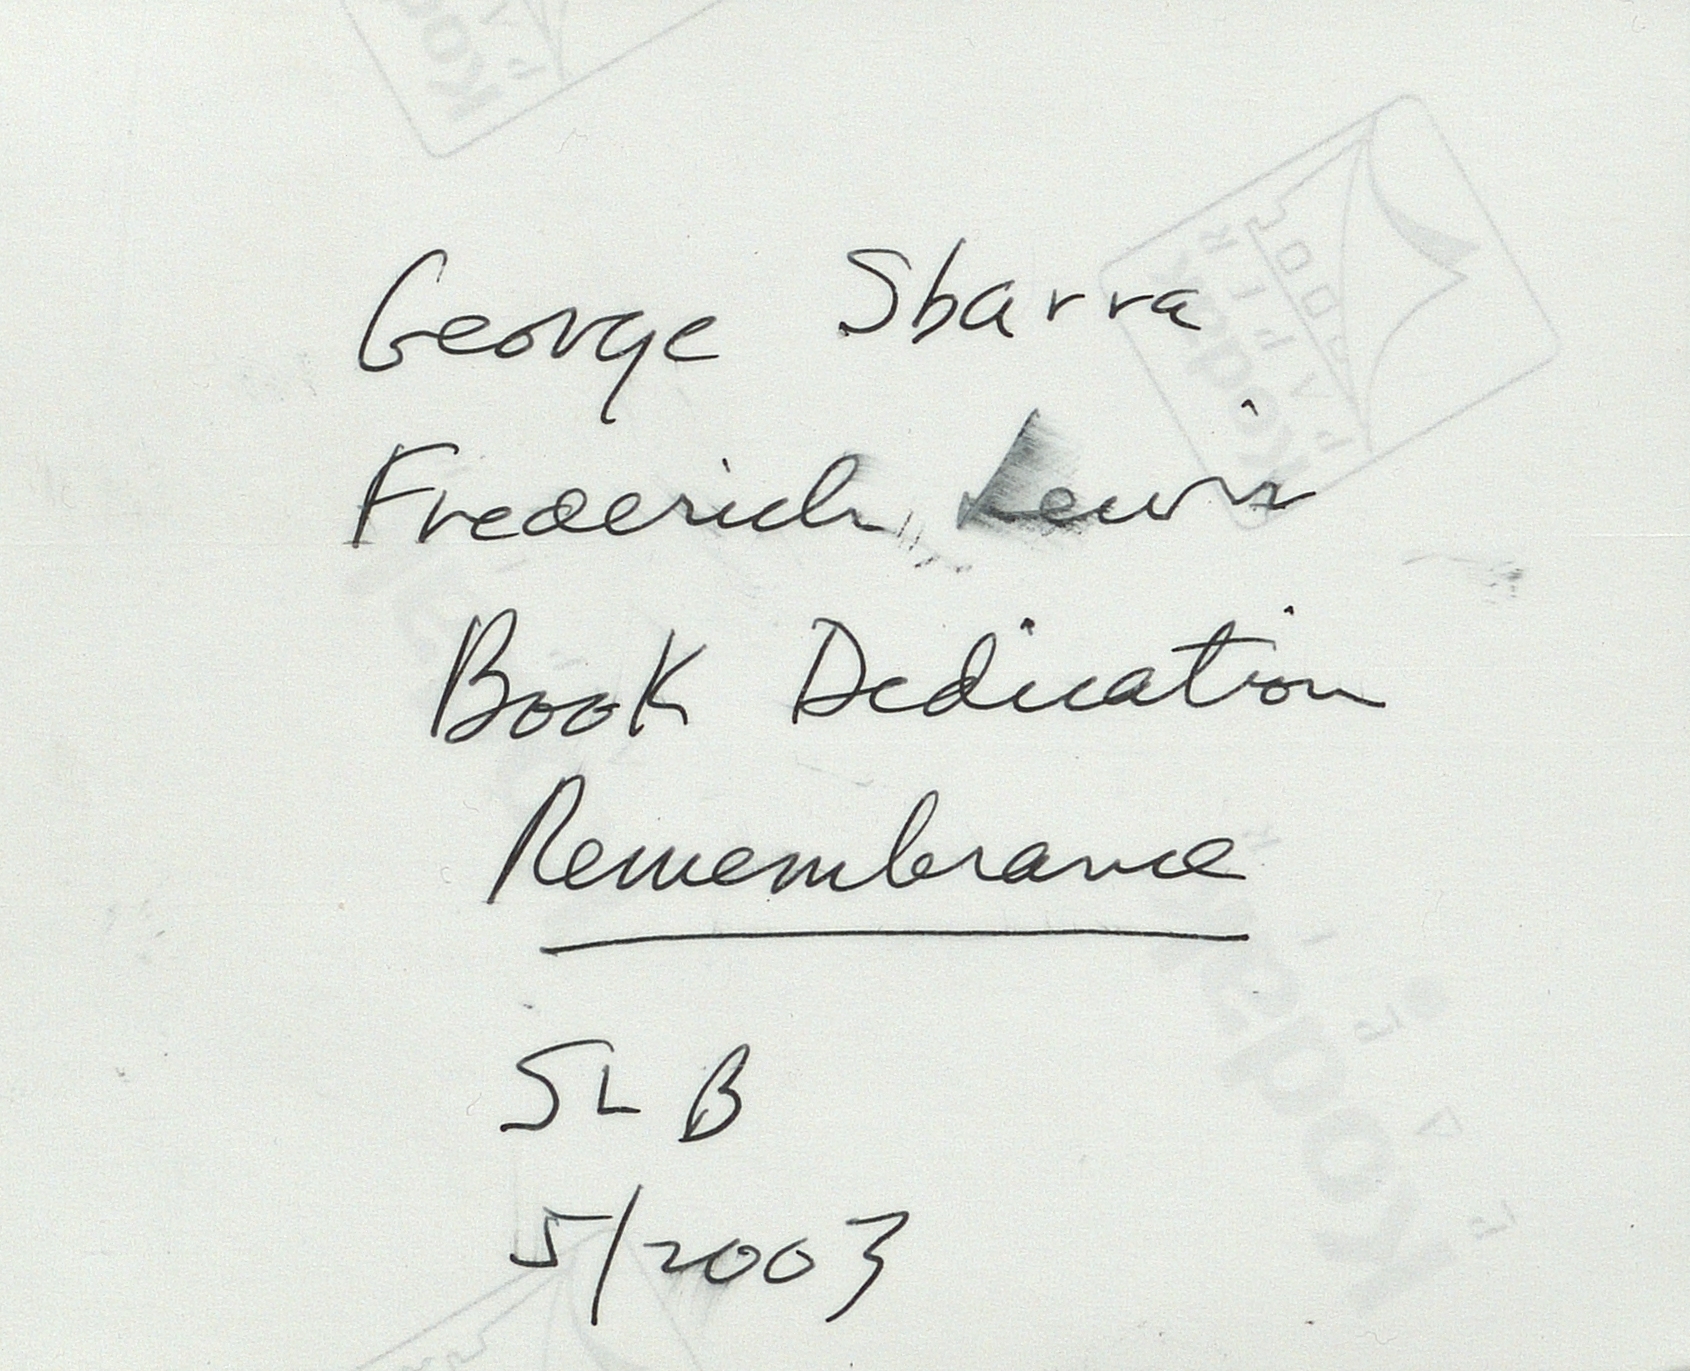 George Sbarra
Frederick Lewis
Book Dedication
Remembrance
SLB
5/2003
Kodak